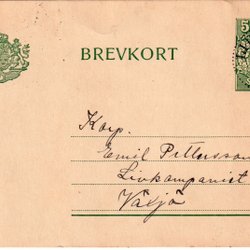 BREVKORT
5
Korp.
Emil Pettersson
Livkompanist
Växjö